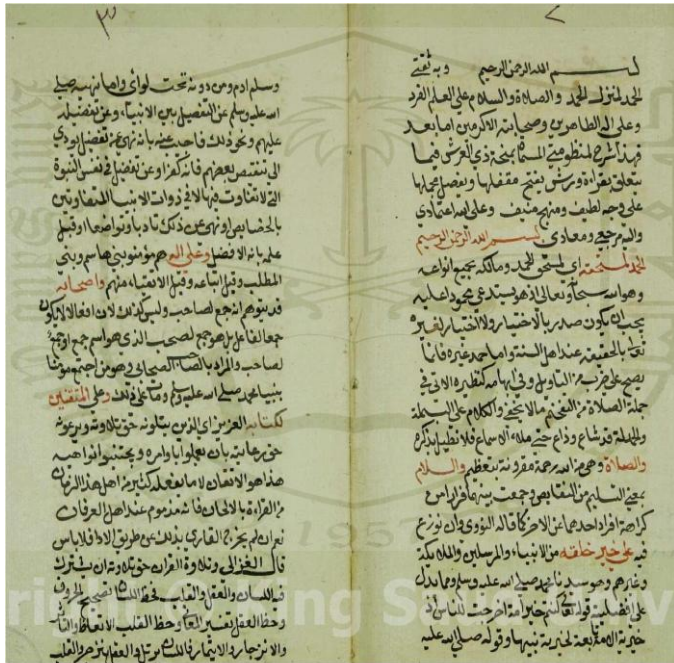 بسم الله الرحمن الرحيم وبه ثقتي
الحمد لمنزل الحمد والصلاة والسلام على العلم الفرد
وعلى اله الطاهرين وصحابته الاكرمين اما بعد
فهذا شرح لمنظومتي المسماة بمنحة ذي العرش فيما
يتعلق بقراءة ورش يفتح مقفلها ويفصل مجملها
على وجه لطيف ومنهج منيف وعلى الله اعتمادي
واليه مرجعي ومعادي بسم الله الرحمن الرحيم
الحمد لمستحقه اي المستحق للحمد ومالكه بجميع انواعه
وهو الله سبحانه وتعالى اذ هو يستدعي محمودا عليه
يجب ان يكون صدر بالاختيار ولا اختيار لغيره
تعالى بالحقيقة عند اهل السنة واما حمد غيره فانما
يصح على ضرب من التاويل وفي ابهامه كنظيره الاتي في
جملة الصلاة من التفخيم ما لا يخفى والكلام على البسملة
والحمدلة قد شاع وذاع حتى ملء الاسماع فلا نطيل بذكره
والصلاة وهي من الله رحمة مقرونة بتعظيم والسلام
بمعنى التسليم من النقايص وجمعت بينهما فرارا من
كراهة افراد احدهما عن الاخر كما قاله النووي وان نوزع
فيه على خير خلقه من الانبياء والمرسلين والملائكة
وغيرهم وهو سيدنا محمد صلى الله عليه وسلم ومما يدل
على افضليته قوله تعالى كنتم خير امة اخرجت للناس اذ
خيرية الامة تابعة لخيرية نبيها وقوله صلى الله عليه
وسلم ادم ومن دونه تحت لوائي واما نهيه صلى
الله عليه وسلم عن التفضيل بين الانبياء وعن تفضيله
عليهم ونحو ذلك فاجيب عنه بانه نهى عن تفضيل يودي
الى تنقيص بعضهم فانه كفر او عن تفضيل في نفس النبوة
التي لا تتفاوت فيها لا في ذوات الانبيا المتفاوتين
بالخصايص او نهى عن ذلك تادبا وتواضعا او قبل
علمه بانه الافضل وعلى اله هم مؤمنو بني هاشم وبني
المطلب وقيل اتباعه وقيل الاتقياء منهم واصحابه
قد يتوهم انه جمع لصاحب وليس كذلك لان افعالا لا يكون
جمعا لفاعل بل هو جمع لصحب الذي هو اسم جمع او جمع
لصاحب والمراد بالصاحب الصحابي وهو من اجتمع مؤمنا
بنبينا محمد صلى الله عليه وسلم ومات على ذلك وعلى المتقنين
لكتابه العزيز اي الذين يتلونه حق تلاوته ويرعونه
حق رعايته بان يعملوا باوامره ويجتنبوا نواهيه
هذا هو الاتقان لا ما يفعله كثير من اهل هذا الزمان
من القراءة بالالحان فانه مذموم عند اهل العرفان
نعم ان لم يخرج القاري بذلك عن طريق الادا فلا باس
قال الغزالي وتلاوة القران حق تلاوته ان يشترك
فيه اللسان والعقل والقلب فحظ اللسان تصحيح الحروف
وحظ العقل تفسير المعاني وحظ القلب الاتعاظ والتاثر
والانزجار والايتمار فاللسان يرتل والعقل ينزجر والقلب